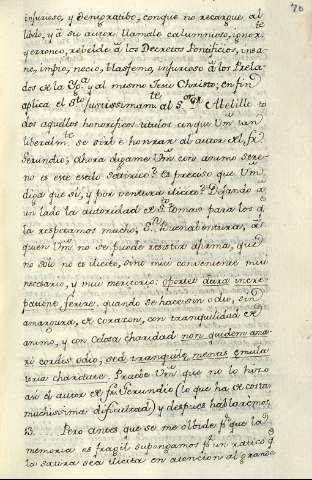 70
injurioso, y denigratibo, conque no recargue al
libelo, y â su autor. llamale calumnioso, ignorte
y erroneo, rebelde â los Decretos Pontificios, insa-
no, impio, necio, blasfemo, injurioso â los Prela-
dos de la Yga. y al mismo Jesu Christo; en fin
aplica el Sto justissimamte â Sor Abeille to
dos aquellos honorificos titulos conque Vm tan
liberalmte se sirbe honrrar al autor de fr
Gerundio; Ahora digame Vm con animo sere-
no es este estilo satirico? es preciso que Vm
diga que si, y por ventura ilicito? Dejando â
un lado la autoridad de Sto tomas para los q
la respetamos mucho, Sn Buenabentura, â
quien Vm no se puede resistir afirma, que
no solo no es ilicito, sino mui conveniente mui
necesario, y mui meritorio: oportet dura incre
patione ferire. quando se hace sin odio, sin
amargura, de corazon, con tranquilidad de
animo, y con celosa charidad non quidem ama
ri cordis odio, sed tranquilæ mentis æmula
toria charitate. Pruebe Vm que no lo hizo
asi el autor de fr Gerundio (lo que ha de costar
muchissima dificultad) y despues hablarêmos
53. Pero antes que se me olbide pr que la
memoria es fragil supongamos pr un ratico q
la satira sea ilicita en atencion al grande